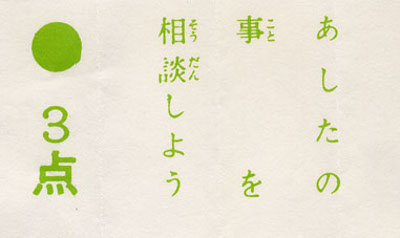 あしたの
事を
相談しよう
● 3点